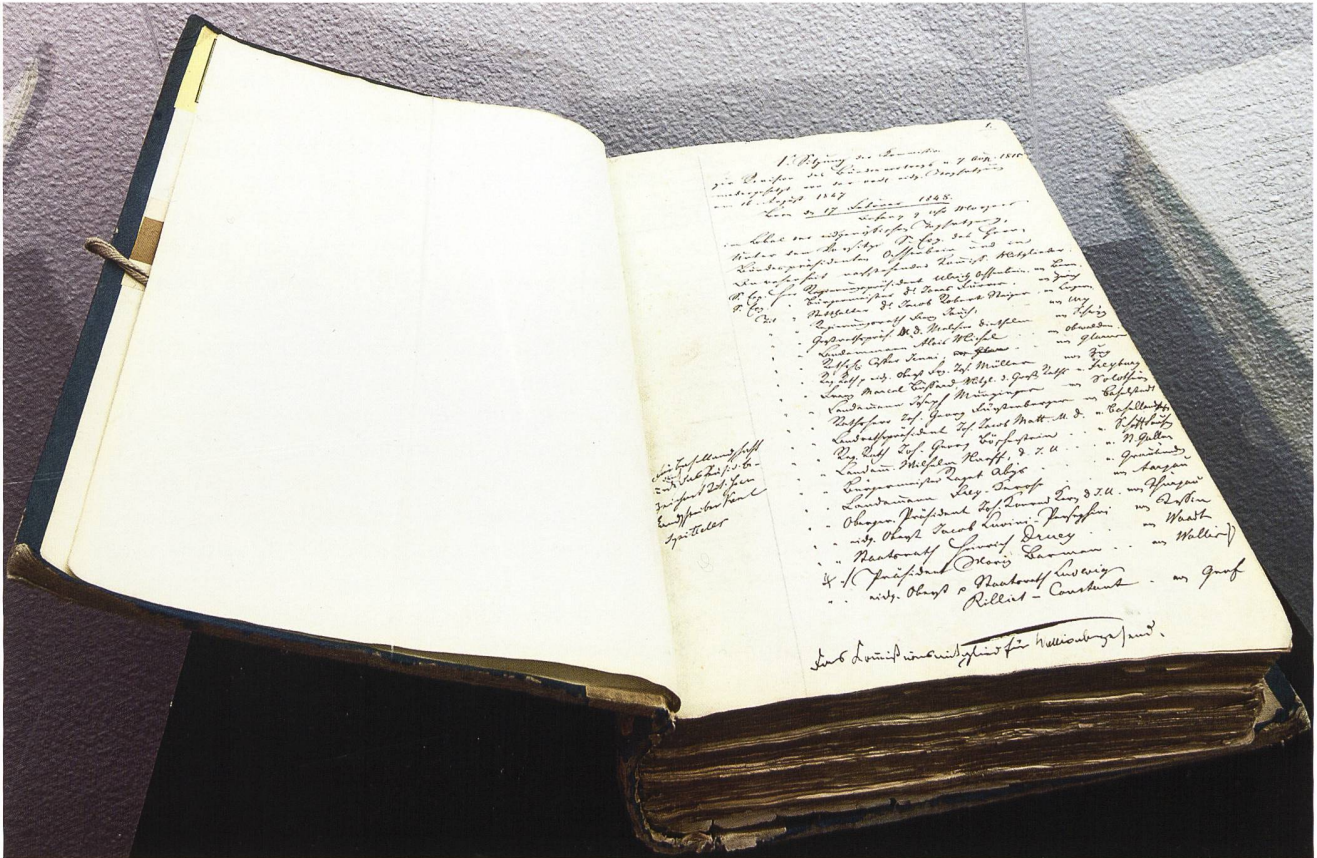 1.
1. Sitzung der Kommission
zur Revision des Bundesvertrags v. 7 Aug. 1815
niedergesetzt von der eidg. Tagsatzung
am 16 August 1847
Bern den 17 Februar 1848.
im Lokal der eidgenössischen Tagsatzung,
Unter dem Vorsitze S. Exz. des Herrn
Bundespräsidenten Ochsenbein und in
Anwesenheit nachstehender Kommiss. Mitglieder
S. Exz. Herr Regierungspräsident Ulrich Ochsenbein, von Bern,
S. Exz. " Bürgermeister Dr. Jonas Furrer. von Zürich
" Statthalter Dr. Jacob Robert Steiger von Luzern
" Franz Jauch, von Ury
" M. D. Melchior Diethelm von Schwyz
" Landammann Alois Michel von Obwalden
" Caspar Jenni, von Glarus
" Reg. Rath, eidg. Oberst Frz. Jos. Müller von Zug
" Franz Marcel Bussard Mitgl. d. Groß. Raths " Freyburg
" Landammann Joseph Munzinger von Solothurn
" Rathsherr Joh. Georg Fürstenberger von Baselstadt
" Landrathspräsident Joh. Jacob Matt. M. D. v. Basellandschaft
" Reg. Rath Joh. Georg Böschenstein " Schaffhausen
" Landamm. Wilhelm Naeff, d. J. U. " St. Gallen
" Bürgermeister Raget Abys " Graubünden
" Landammann Frey-Herosé von Aargau
" Oberger. Präsident Joh. Konrad Kern d. J. U. von Thurgau
" eidg. Oberst Jacob Luvini-Perseghini von Tessin
" Staatsrath Heinrich Druey von Waadt
" Präsident Moriz Barman von Wallis
" eidg. Oberst & Staatsrath Ludwig
Rilliet-Constant von Genf
Das Komißionsmitglied für Wallis abwesend.
für Basellandschaft
Landschreiber
Spitteler